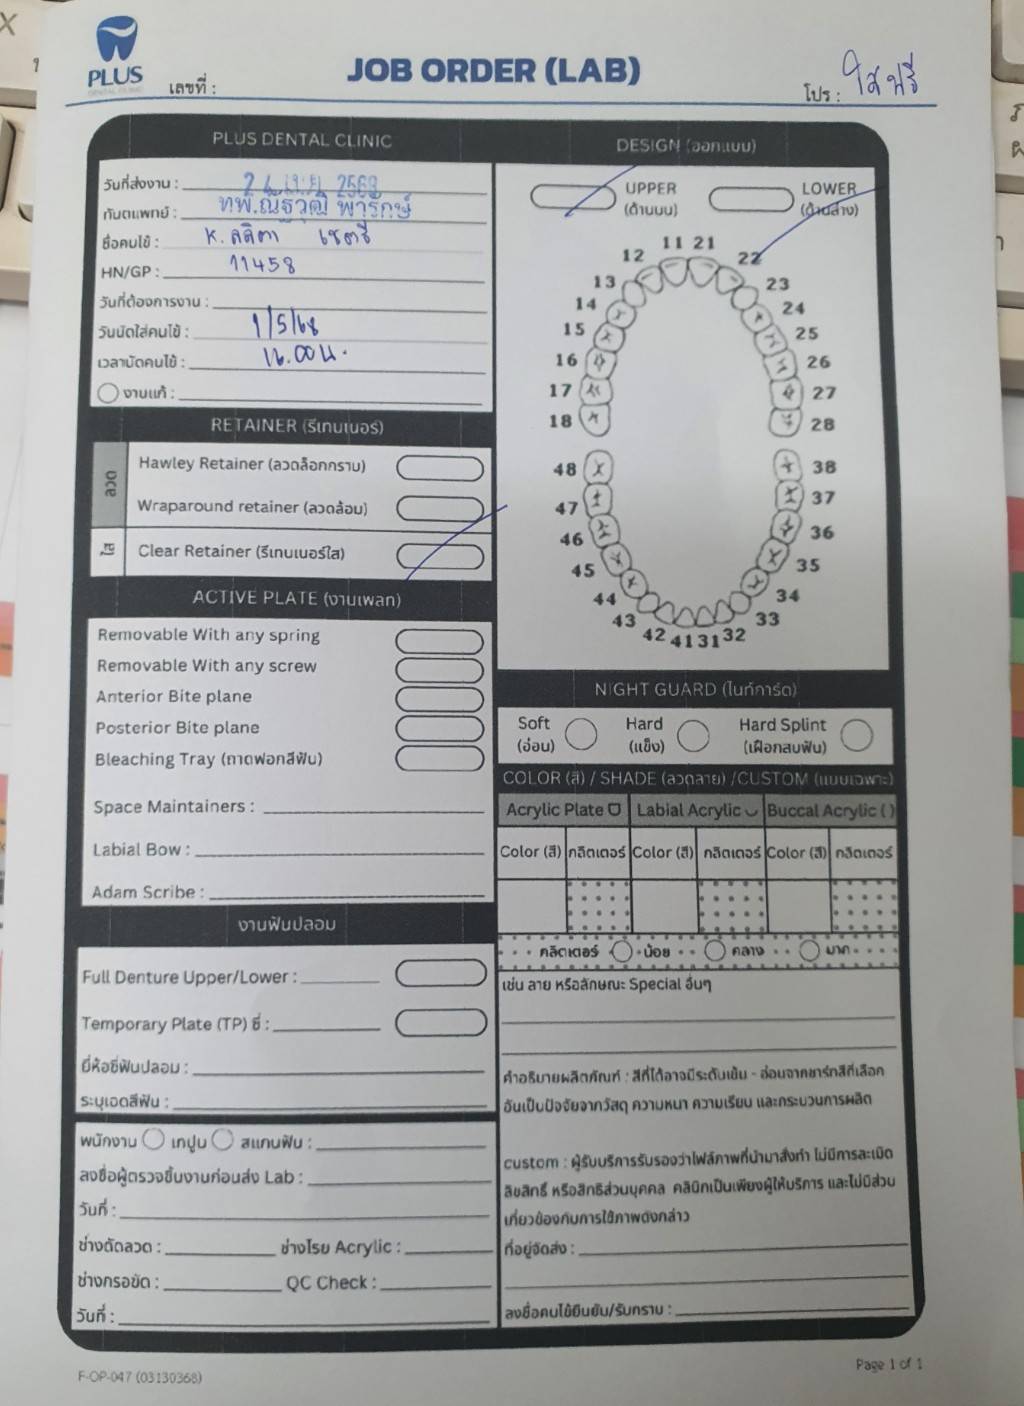 PLUS
DENTAL CLINIC
เลขที่ :
JOB ORDER (LAB)
โปร : ใสฟรี
PLUS DENTAL CLINIC
วันที่ส่งงาน : 2568
ทันตแพทย์ : ทพ.ณัฐวุฒิ พำรักษ์
ชื่อคนไข้ : K. ลลิตา
HN/GP : 11458
วันที่ต้องการงาน :
วันนัดใส่คนไข้ : 1/5/68
เวลานัดคนไข้ : 16.00 น.
งานแก้ :
RETAINER (รีเทนเนอร์)
ลวด
Hawley Retainer (ลวดล็อกกราม)
Wraparound retainer (ลวดล้อม)
ใส
Clear Retainer (รีเทนเนอร์ใส)
ACTIVE PLATE (งานเพลท)
Removable With any spring
Removable With any screw
Anterior Bite plane
Posterior Bite plane
Bleaching Tray (ถาดฟอกสีฟัน)
Space Maintainers :
Labial Bow :
Adam Scribe :
งานฟันปลอม
Full Denture Upper/Lower :
Temporary Plate (TP) ซี่ :
ยี่ห้อซี่ฟันปลอม :
ระบุเฉดสีฟัน :
พนักงาน เทปูน สแกนฟัน :
ลงชื่อผู้ตรวจชิ้นงานก่อนส่ง Lab :
วันที่ :
ช่างดัดลวด : ช่างโรย Acrylic :
ช่างกรอขัด : QC Check :
วันที่ :
DESIGN (ออกแบบ)
UPPER
(ด้านบน)
LOWER
(ด้านล่าง)
11 21
12 22
13 23
14 24
15 25
16 26
17 27
18 28
48 38
47 37
46 36
45 35
44 34
43 33
42 41 31 32
NIGHT GUARD (ไนท์การ์ด)
Soft
(อ่อน)
Hard
(แข็ง)
Hard Splint
(เฝือกสบฟัน)
COLOR (สี) / SHADE (ลวดลาย) /CUSTOM (แบบเฉพาะ)
Acrylic Plate Labial Acrylic Buccal Acrylic ( )
Color (สี) กลิตเตอร์ Color (สี) กลิตเตอร์ Color (สี) กลิตเตอร์
กลิตเตอร์ น้อย กลาง มาก
เช่น ลาย หรือลักษณะ Special อื่นๆ
คำอธิบายผลิตภัณฑ์ : สีที่ได้อาจมีระดับเข้ม - อ่อนจากชาร์ทสีที่เลือก
อันเป็นปัจจัยจากวัสดุ ความหนา ความเรียบ และกระบวนการผลิต
custom : ผู้รับบริการรับรองว่าไฟล์ภาพที่นำมาสั่งทำ ไม่มีการละเมิด
ลิขสิทธิ์ หรือสิทธิส่วนบุคคล คลินิกเป็นเพียงผู้ให้บริการ และไม่มีส่วน
เกี่ยวข้องกับการใช้ภาพดังกล่าว
ที่อยู่จัดส่ง :
ลงชื่อคนไข้ยืนยัน/รับทราบ :
F-OP-047 (03130368)
Page 1 of 1